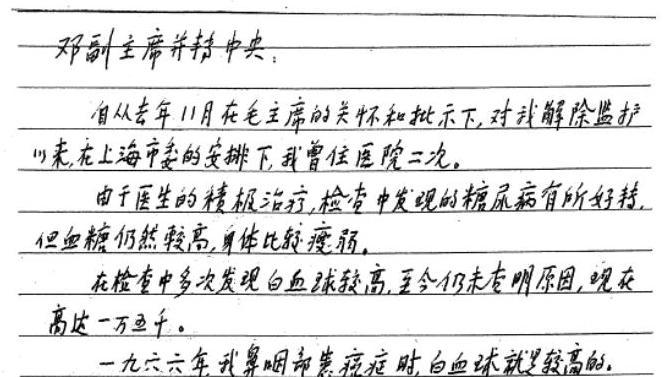 邓副主席并转中央：
自从去年11月在毛主席的关怀和批示下，对我解除监护
以来，在上海市委的安排下，我曾住医院二次。
由于医生的积极治疗，检查中发现的糖尿病有所好转，
但血糖仍然较高，身体比较瘦弱。
在检查中多次发现白血球较高，至今仍未查明原因，现在
高达一万五千。
一九六六年我鼻咽部患癌症时，白血球就是较高的。